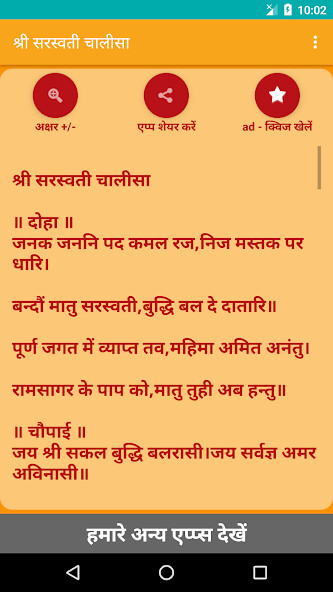 10:02
श्री सरस्वती चालीसा
अक्षर +/-
एप्प शेयर करें
ad - क्विज खेलें
श्री सरस्वती चालीसा
॥ दोहा ॥
जनक जननि पद कमल रज,निज मस्तक पर
धारि।
बन्दौं मातु सरस्वती,बुद्धि बल दे दातारि॥
पूर्ण जगत में व्याप्त तव,महिमा अमित अनंतु।
रामसागर के पाप को,मातु तुही अब हन्तु॥
॥ चौपाई ॥
जय श्री सकल बुद्धि बलरासी।जय सर्वज्ञ अमर
अविनासी॥
हमारे अन्य एप्प्स देखें